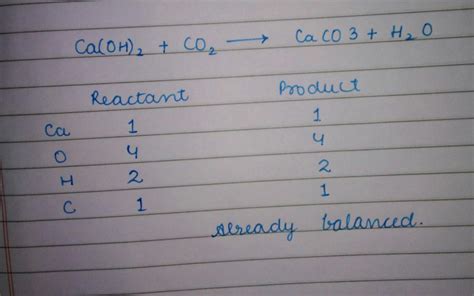 Ca(OH)₂ + CO₂ → CaCO3 + H₂O
Reactant Product
Ca 1 1
O 4 4
H 2 2
C 1 1
Already balanced.